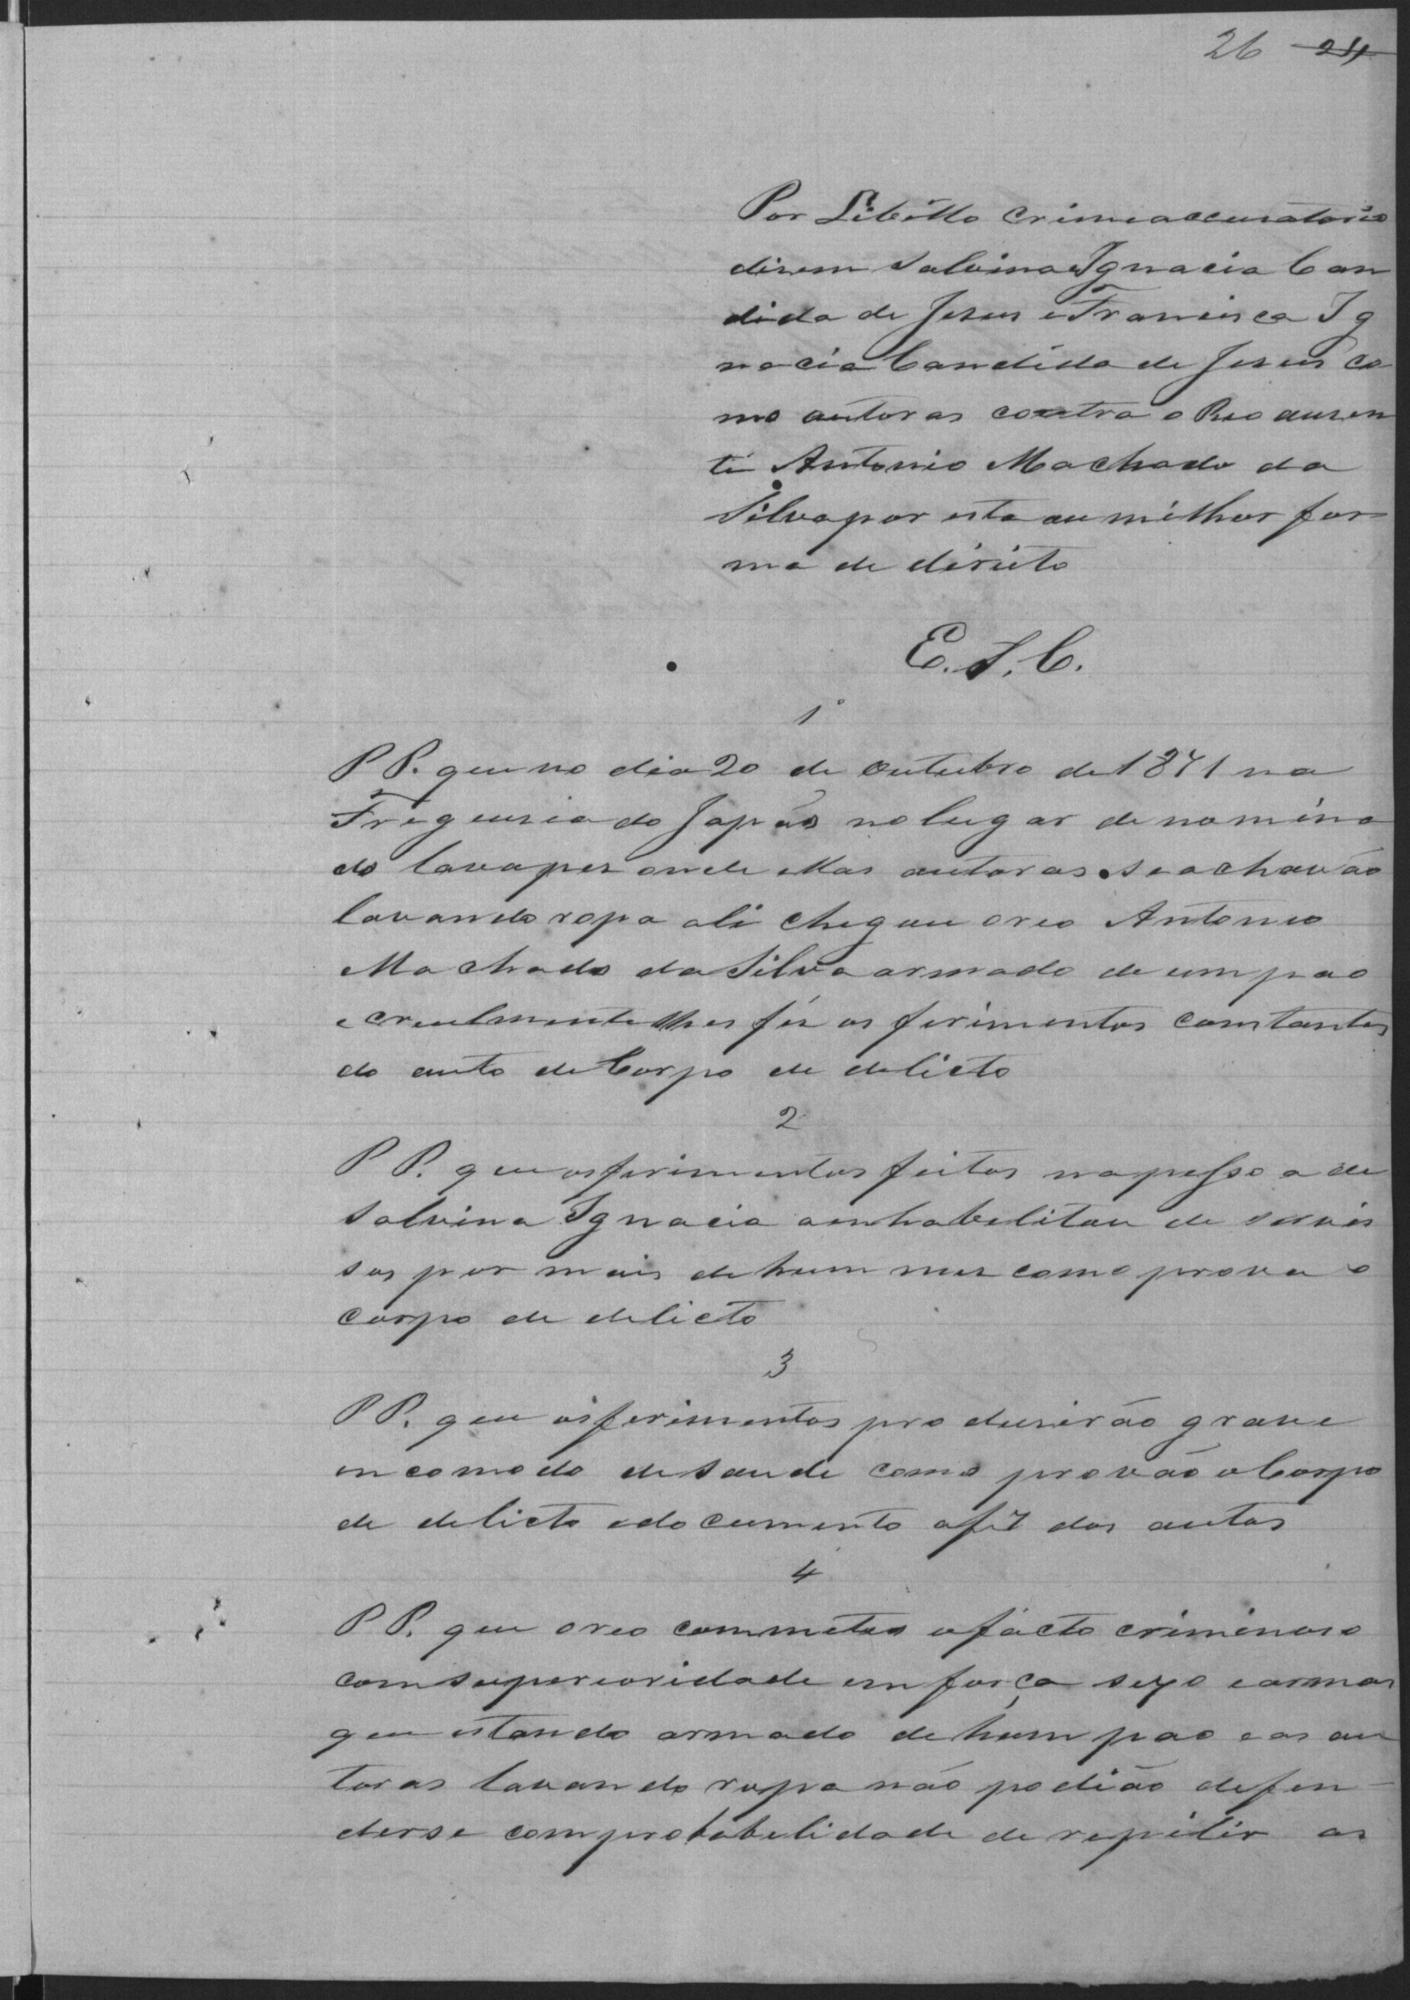 26 24
Por Libéllo crime accusatorio
disem Salvina Ignacia Can
dida de Jesus e Francisca Ig
nacia Candida de Jesus co
mo autoras contra o Reo ausen
te Antonio Machado da
Silva por esta ou milhor for
ma de dirieto
E. S. C.
1º
P P. que no dia 20 de outubro de 1871 na
Freguesia do Japão no lugar denomina
do lavapes onde ellas autoras se achavão
lavando ropa ali chegou o reo Antonio
Machado da Silva armado de um pao
e cruelmente lhes fés os ferimentos constantes
do auto de Corpo de delicto
2
P P. que os ferimentos feitos na pessoa de
Salvina Ignacia a enhabelitou de servis
sos por mais de hum mes como prova o
corpo de delicto
3
P P. que os ferimentos produsirão grave
encomodo de saude como provão o Corpo
de delicto e documento a f 7 dos autos
4
P P. que o reo commeteo o facto criminoso
com superioridade em força sexo e armas
que estando armado de hum pao e as au
toras lavando ropa não podião defen
derse com probabelidade de repelir as